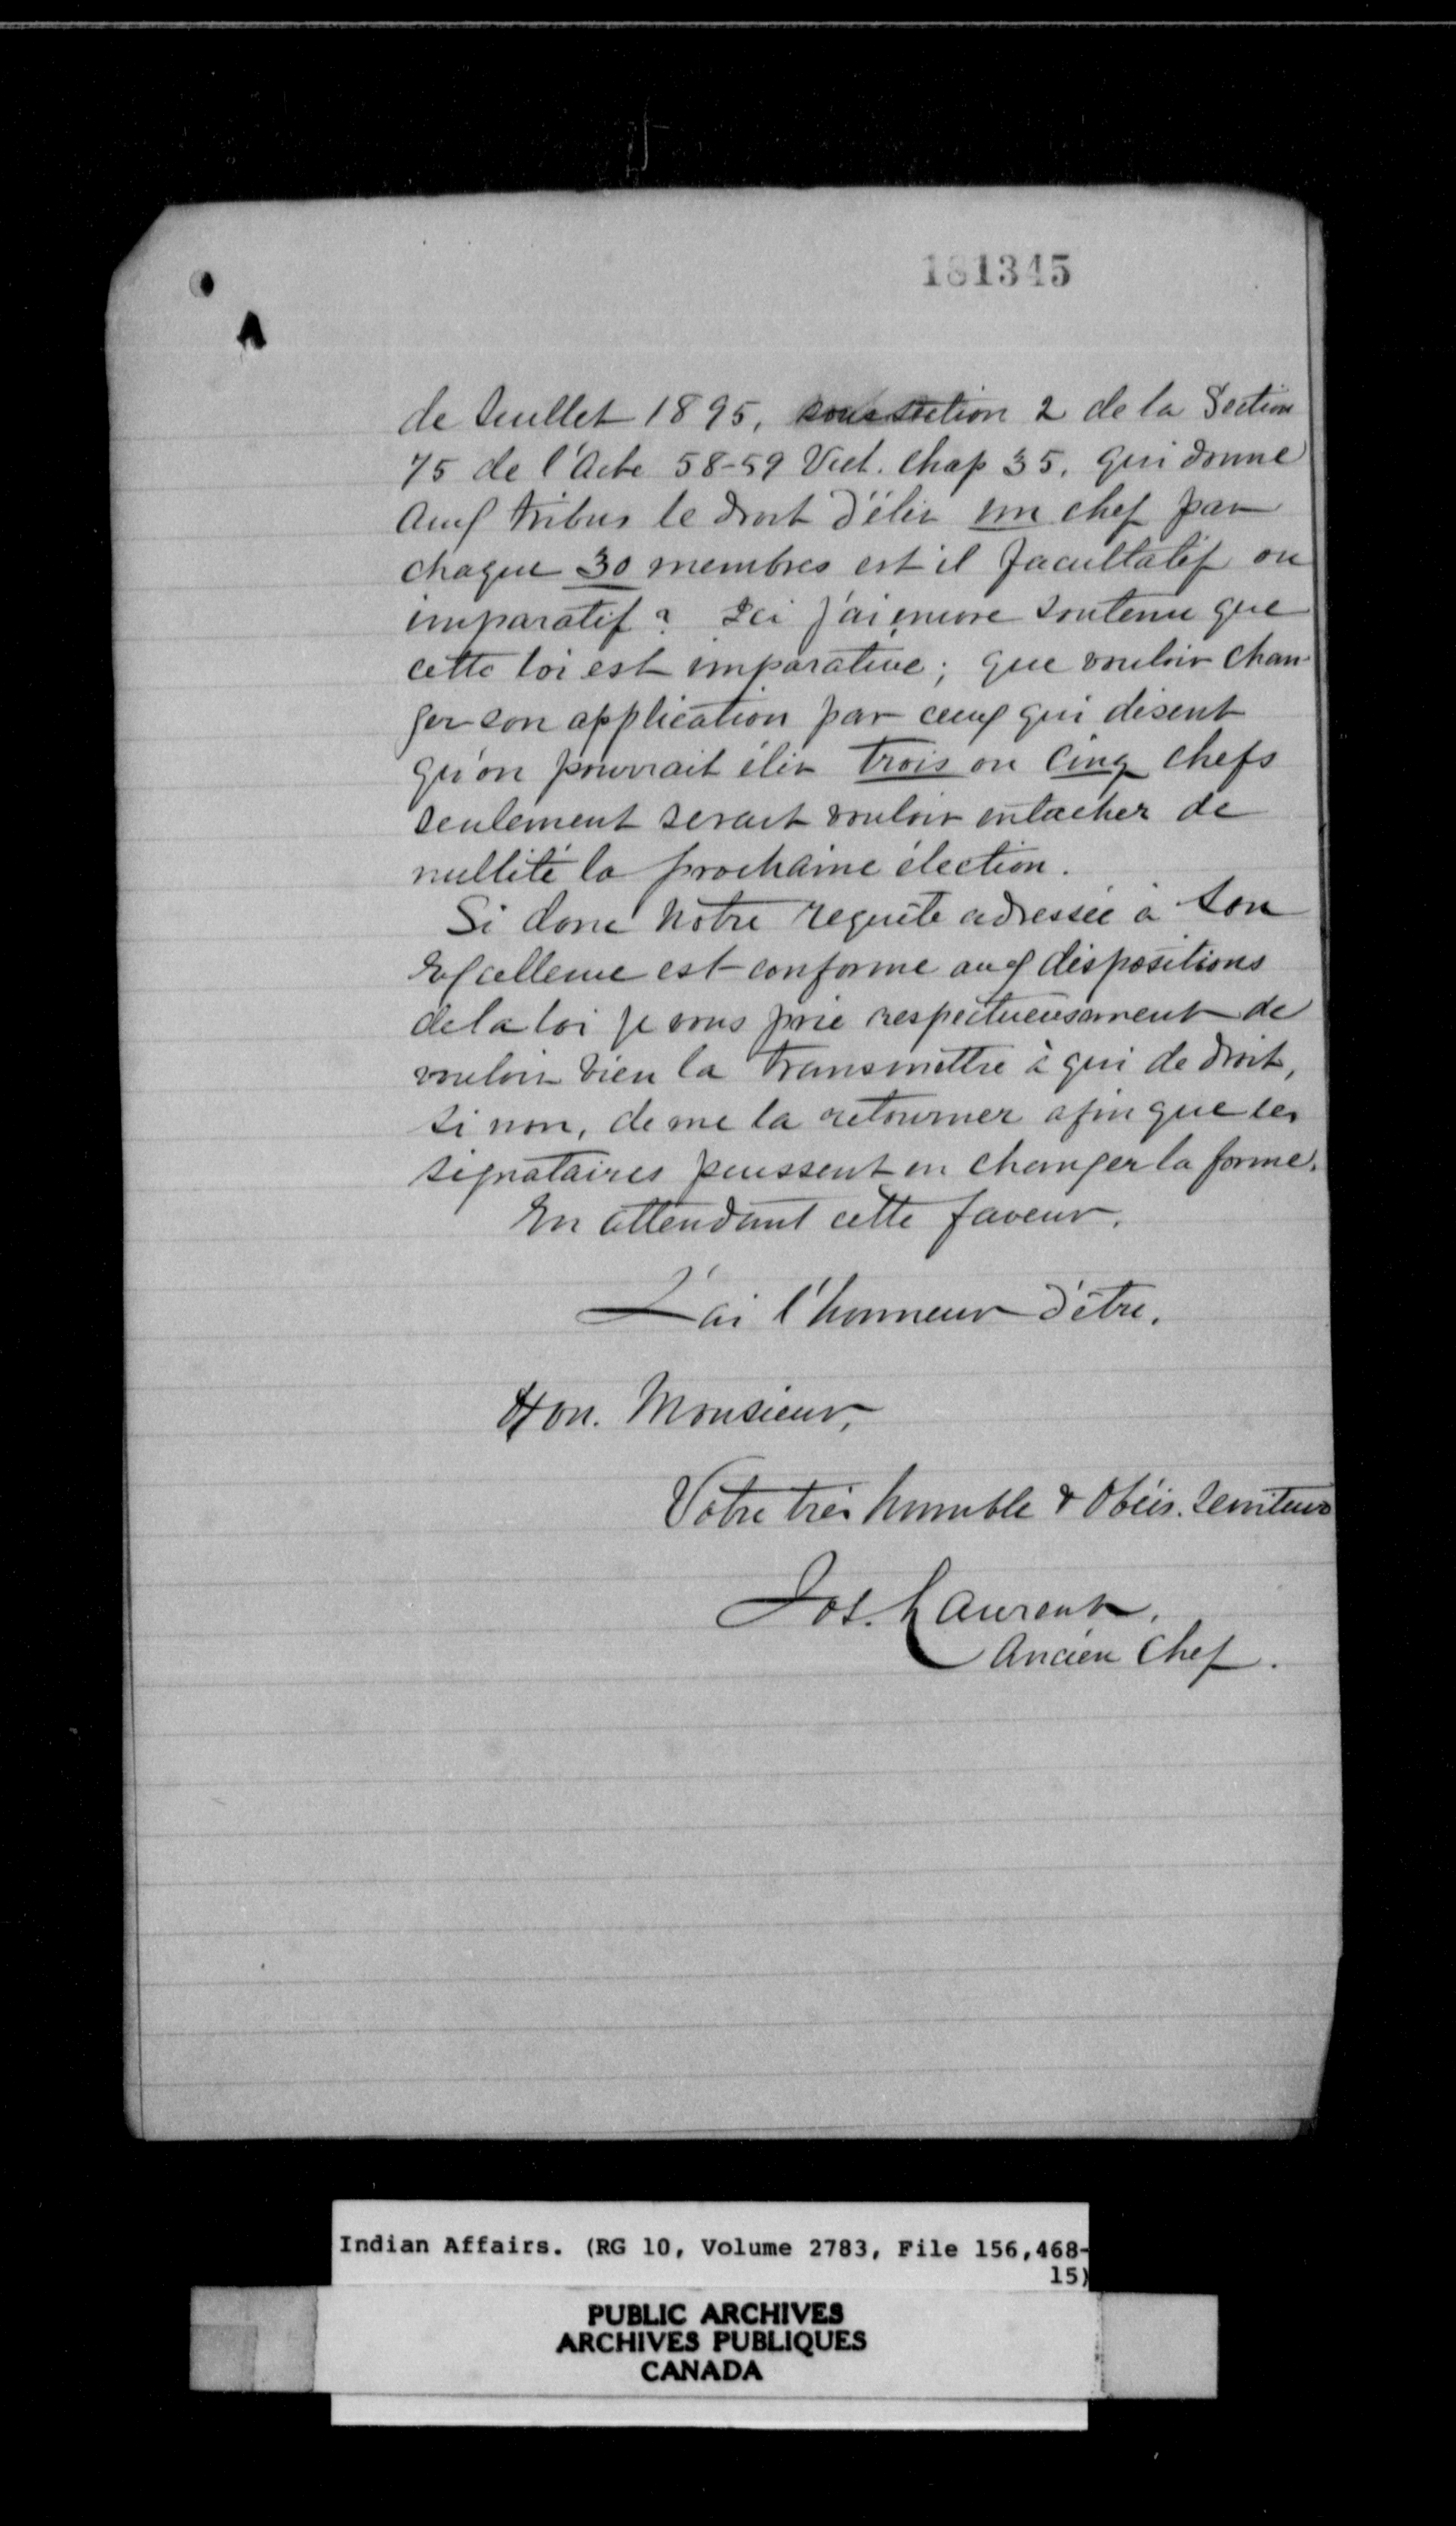 181345
de Juillet 1895, sous section 2 de la Section
75 de l'Acte 58-59 Vict. Chap 35, qui donne
aux tribus le droit d'élir un chef par
chaque 30 membres est il facultatif ou
imparatif? Ici j'ai encore soutenu que
cette loi est imparative; que vouloir chan-
ger son application par ceux qui disent
qu'on pourrait élir trois ou cinq chefs
seulement serait vouloir entacher de
nullité la prochaine élection.
Si donc notre requête adressée à Son
Excellence est conforme aux dispositions
de la loi je vous prie respectueusement de
vouloir bien la transmettre à qui de droit,
si non, de me la retourner afin que les
signataires puissent en changer la forme.
En attendant cette faveur,
J'ai l'honneur d'être,
Hon. Monsieur,
Votre très humble & Obéis. Serviteur
Jos. Laurent,
Ancien Chef.
Indian Affairs. (RG 10, Volume 2783, File 156,468-
15)
PUBLIC ARCHIVES
ARCHIVES PUBLIQUES
CANADA